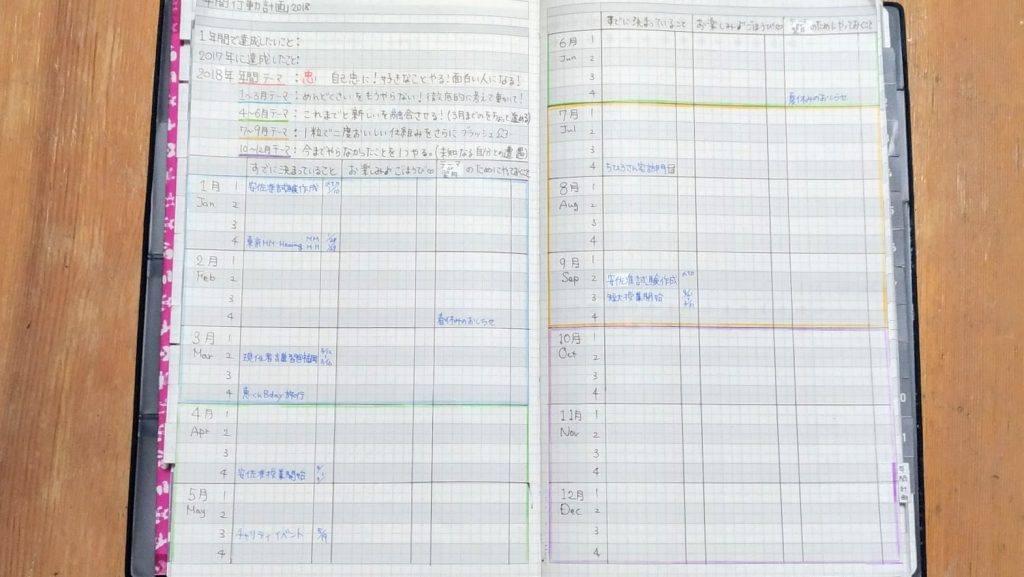 年間行動計画 2018
1年間で達成したいこと:
2017年に達成したこと:
2018年 年間テーマ : 忠! 自己忠に!好きなことやる!面白い人になる!
1~3月テーマ : めんどくさいをもうやらない!徹底的に考えて動かて!
4~6月テーマ : これまでと新しいを融合させる!(3月までのをもって進める)
7~9月テーマ : 1粒で二度おいしい仕組みをさらにブラッシュ
10~12月テーマ : 今までやらなかったことを1つやる。(未知なる自分との遭遇)
すでに決まっていること お楽しみ♪ごほうび のためにやっておくこと
1月 Jan 1 安佐准試験作成
2
3
4 東京MM Hearing
2月 Feb 1
2
3
4 春休みのおしらせ
3月 Mar 1
2
3
4 Bday旅行
4月 Apr 1
2
3
4 安佐准授業開始
5月 May 1
2
3 チャリティイベント
4
すでに決まっていること お楽しみ♪ごほうび のためにやっておくこと
6月 Jun 1
2
3
4 夏休みのおしらせ
7月 Jul 1
2
3
4 ちひろさん宅訪問
8月 Aug 1
2
3
4
9月 Sep 1
2 安佐准試験作成
3 短大授業開始
4
10月 Oct 1
2
3
4
11月 Nov 1
2
3
4
12月 Dec 1
2
3
4
年間計画